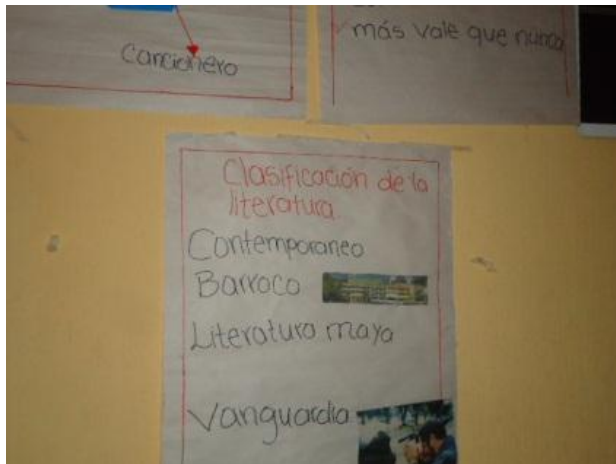 Cancionero
más vale que nunca
Clasificación de la
literatura.
Contemporaneo
Barroco
Literatura maya
Vanguardia